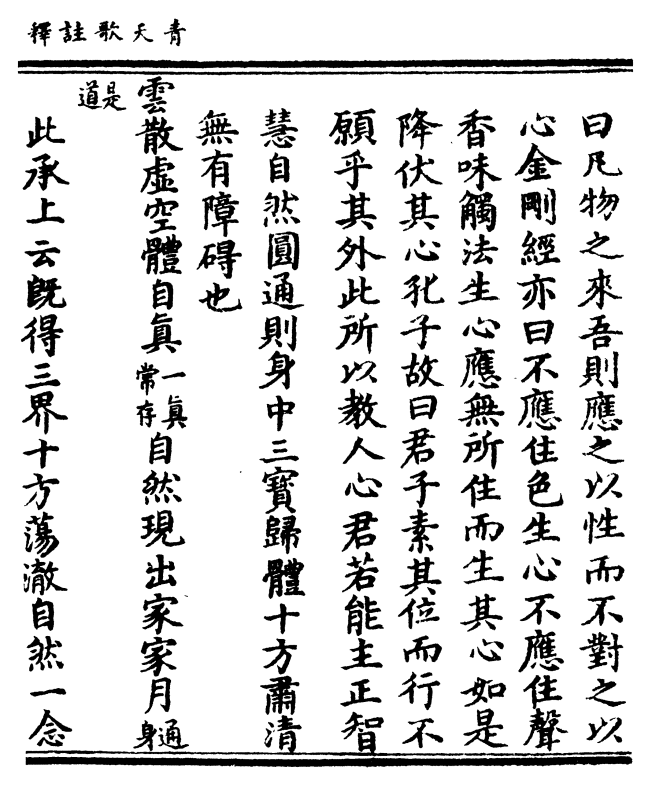 青天歌註釋
曰凡物之來吾則應之以性而不對之以
心金剛經亦曰不應住色生心不應住聲
香味觸法生心應無所住而生其心如是
降伏其心孔子故曰君子素其位而行不
願乎其外此所以教人心君若能主正智
慧自然圓通則身中三寶歸體十方肅清
無有障碍也
雲散虛空體自眞一眞常存自然現出家家月通身是道
此承上云旣得三界十方蕩澈自然一念